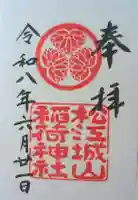 奉拝
松江城山
稲荷神社
令和八年六月廿一日